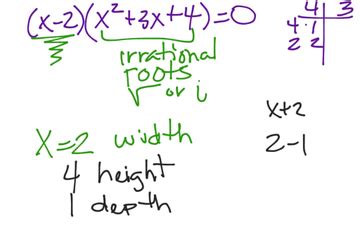 (x-2)(x²+3x+4)=0
4 | 3
4·1
2 2
irrational
roots
√ or i
x+2
X=2 width
2-1
4 height
1 depth